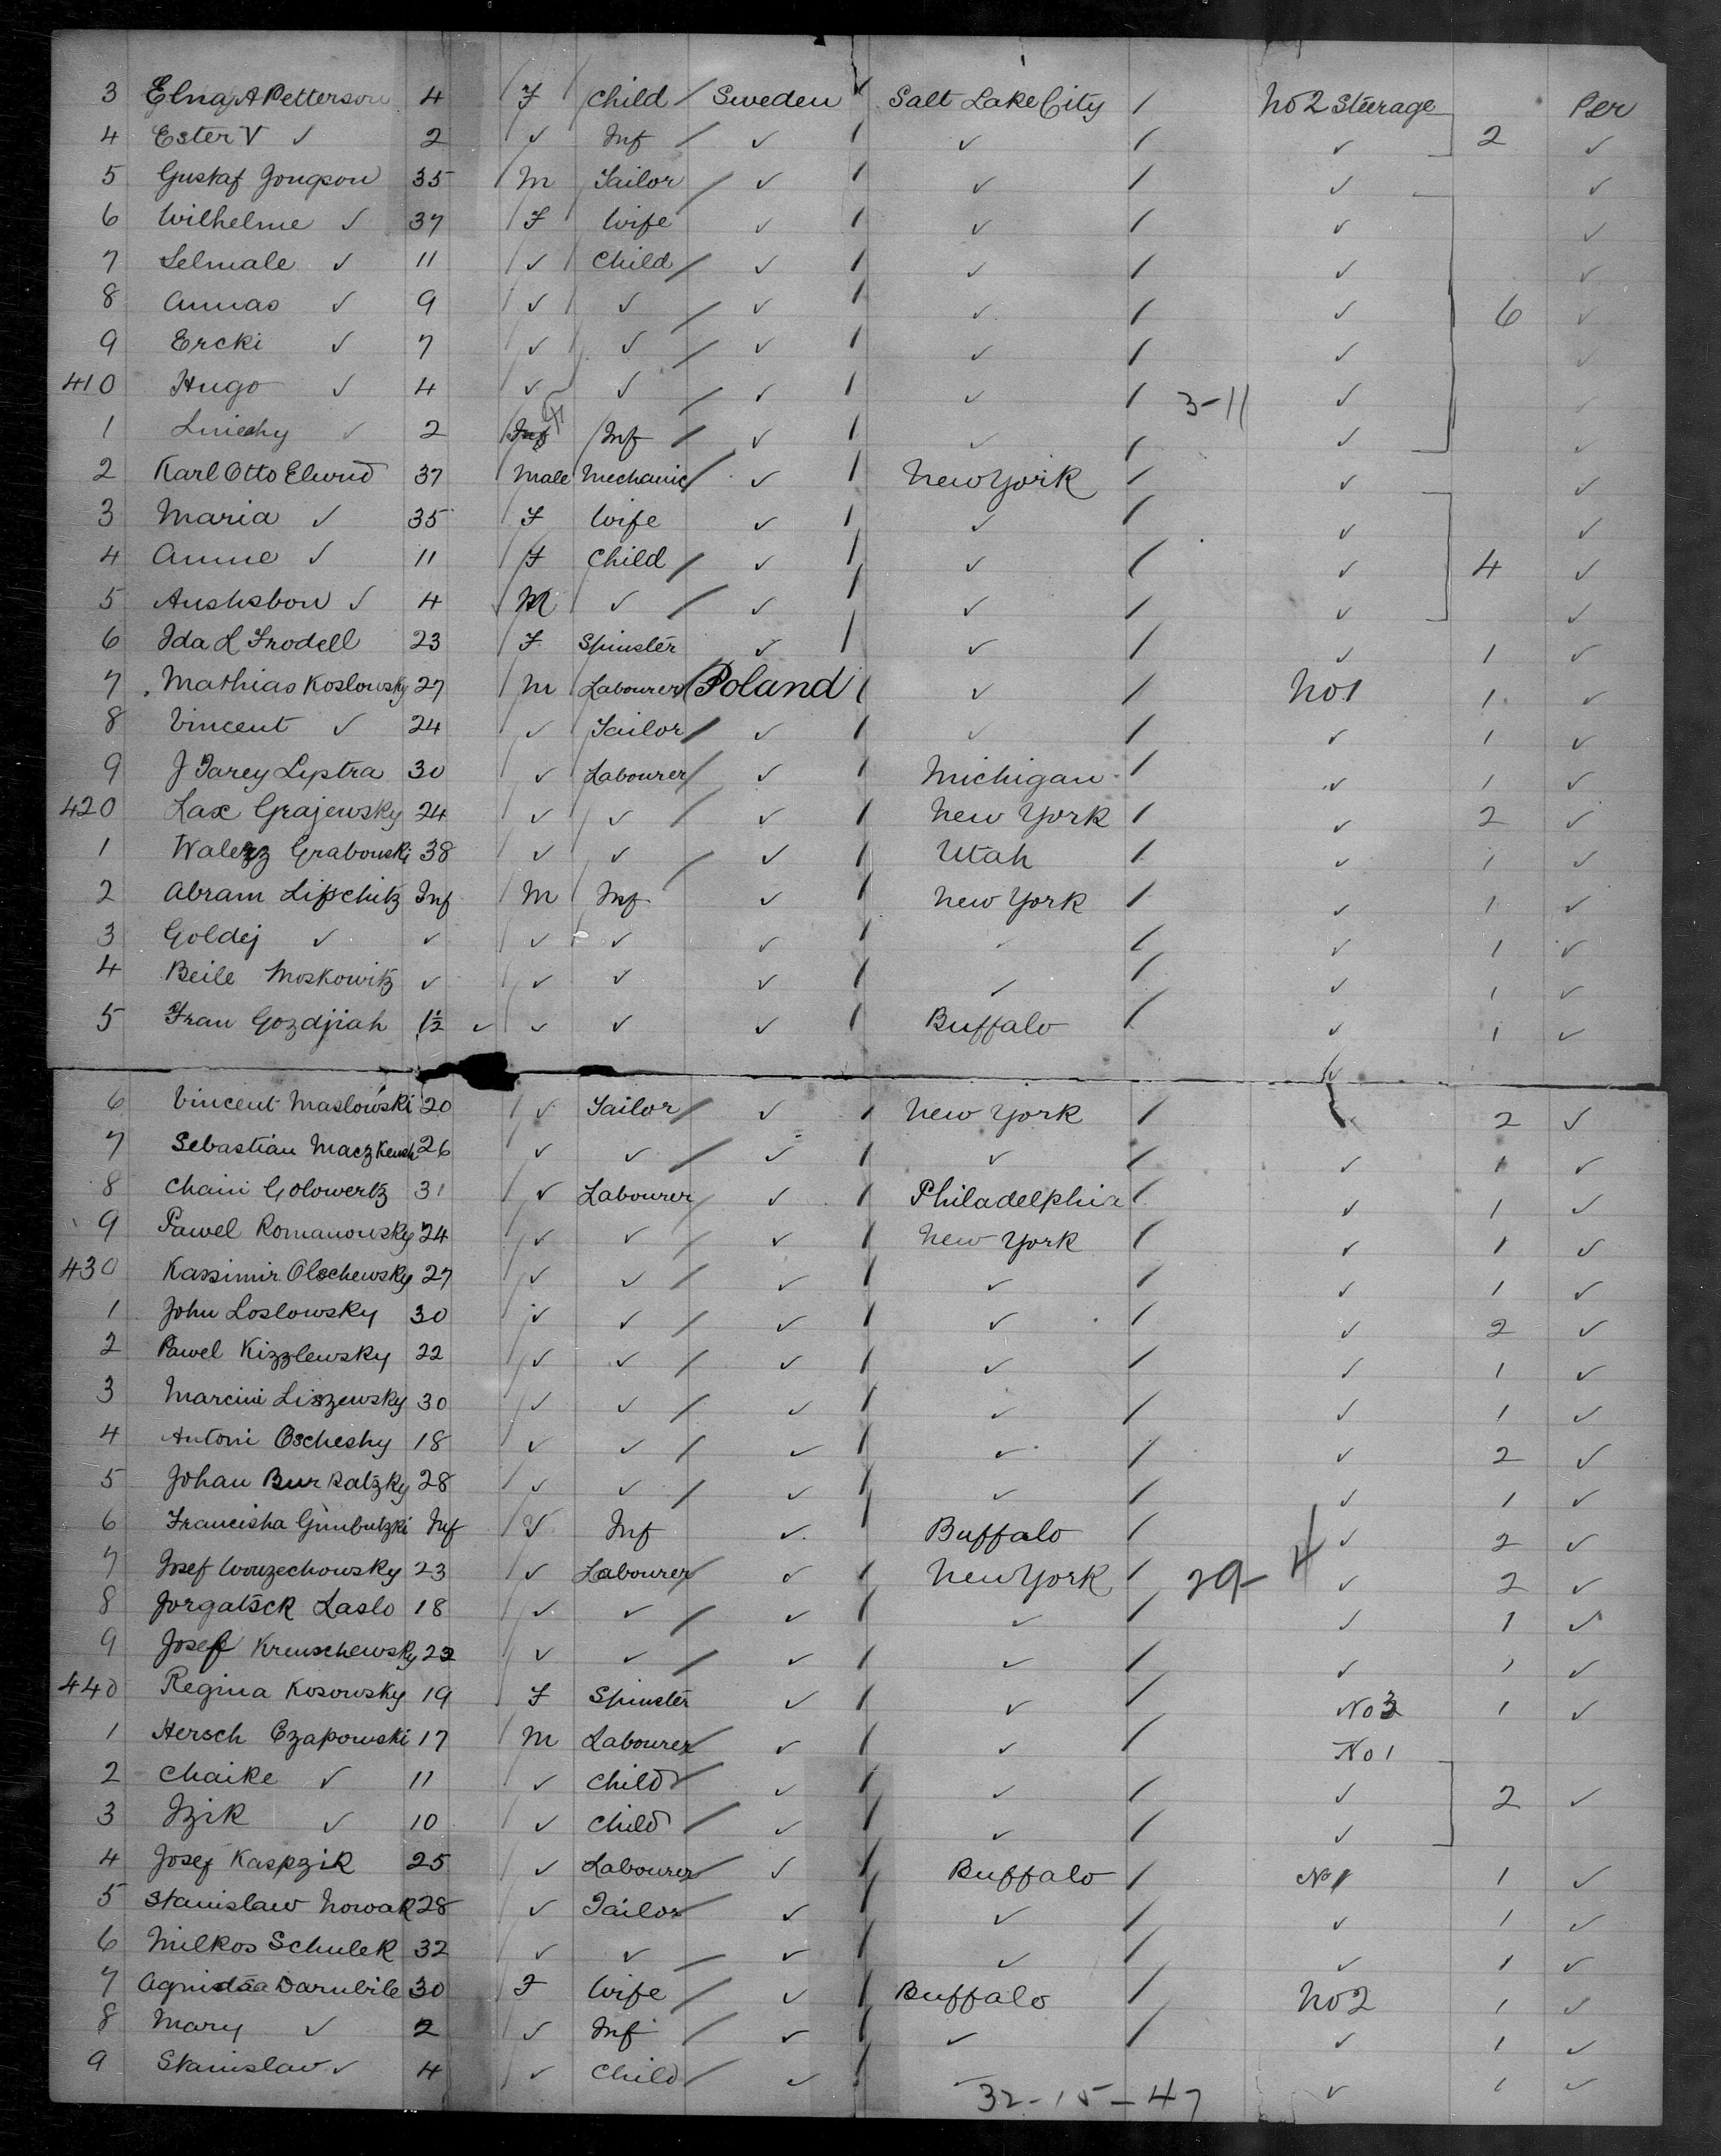 3 Elna A Petterson 4 F Child Sweden Salt Lake City / No 2 Steerage Per
4 Ester V ✓ 2 ✓ Inf / ✓ / ✓ / ✓ 2 ✓
5 Gustaf Jongson 35 M Tailor / ✓ / ✓ / ✓ ✓
6 Wilhelme ✓ 37 F Wife ✓ / ✓ / ✓ ✓
7 Selmale ✓ 11 ✓ Child / ✓ / ✓ / ✓ ✓
8 Annas ✓ 9 ✓ ✓ / ✓ / ✓ / ✓ 6 ✓
9 Ercki ✓ 7 ✓ ✓ / ✓ / ✓ / ✓ ✓
410 Hugo ✓ 4 ✓ ✓ / ✓ / ✓ / 3-11 ✓ ✓
1 ✓ 2 Inf Inf / ✓ / ✓ / ✓ ✓
2 Karl Otto 37 Male Mechanic / ✓ / New York / ✓ ✓
3 Maria ✓ 35 F Wife ✓ / ✓ / ✓ ✓
4 Anne ✓ 11 F Child / ✓ / ✓ / ✓ 4 ✓
5 Aushsbon ✓ 4 M ✓ / ✓ / ✓ / ✓ ✓
6 Ida L Frodell 23 F Spinster ✓ / ✓ / ✓ 1 ✓
7 Mathias Koslowsky 27 M Labourer Poland / ✓ / No 1 1 ✓
8 Vincent ✓ 24 ✓ Tailor / ✓ / ✓ / ✓ 1 ✓
9 J Tarey Lystra 30 ✓ Labourer / ✓ / Michigan / ✓ 1 ✓
420 Lax Grajewsky 24 ✓ ✓ / ✓ / New York / ✓ 2 ✓
1 Walerz Grabouski 38 ✓ ✓ / ✓ / Utah / ✓ 1 ✓
2 Abram Lipschitz Inf M Inf ✓ / New York / ✓ 1 ✓
3 Goldej ✓ ✓ ✓ ✓ ✓ / ✓ / ✓ 1 ✓
4 Beile Moskowitz ✓ ✓ ✓ ✓ / ✓ / ✓ 1 ✓
5 Fran Gozdjiah 1½ ✓ ✓ ✓ ✓ / Buffalo / ✓ 1 ✓
6 Vincent Maslowski 20 ✓ Tailor / ✓ / New York / ✓ 2 ✓
7 Sebastian 26 ✓ ✓ / ✓ / ✓ / ✓ 1 ✓
8 Chaim Golowertz 31 ✓ Labourer / ✓ / Philadelphia / ✓ 1 ✓
9 Pawel Romanowsky 24 ✓ ✓ / ✓ / New York / ✓ 1 ✓
430 Kassimir Olschewsky 27 ✓ ✓ / ✓ / ✓ / ✓ 1 ✓
1 John Loslowsky 30 ✓ ✓ / ✓ / ✓ / ✓ 2 ✓
2 Pawel Kizzlewsky 22 ✓ ✓ / ✓ / ✓ / ✓ 1 ✓
3 Marcini Liszewsky 30 ✓ ✓ / ✓ / ✓ / ✓ 1 ✓
4 Antoni Oscheshy 18 ✓ ✓ / ✓ / ✓ / ✓ 2 ✓
5 Johan Burkatzky 28 ✓ ✓ / ✓ / ✓ / ✓ 1 ✓
6 Francisha Gimbutzki Inf ✓ Inf ✓ / Buffalo / ✓ 2 ✓
7 Josef Wouzechowsky 23 ✓ Labourer / ✓ / New York / 29-4 ✓ 2 ✓
8 Jorgatsck Laslo 18 ✓ ✓ / ✓ / ✓ / ✓ 1 ✓
9 Josef Kreuschewsky 22 ✓ ✓ / ✓ / ✓ / ✓ 1 ✓
440 Regina Kosowsky 19 F Spinster ✓ / ✓ / No 3 1 ✓
1 Hersch Czapowski 17 M Labourer / ✓ / ✓ / No 1
2 Chaike ✓ 11 ✓ Child / ✓ / ✓ / ✓ 2 ✓
3 Izik ✓ 10 ✓ Child / ✓ / ✓ / ✓
4 Josef Kaspzik 25 ✓ Labourer / ✓ / Buffalo / No 1 1 ✓
5 Stanislaw Nowak 28 ✓ Tailor / ✓ / ✓ / ✓ 1 ✓
6 Milkos Schulek 32 ✓ ✓ / ✓ / ✓ / ✓ 1 ✓
7 Darubile 30 F Wife / ✓ / Buffalo / No 2 1 ✓
8 Mary ✓ 2 ✓ Inf / ✓ / ✓ / ✓ 1 ✓
9 Stanislav ✓ 4 ✓ Child / ✓ / ✓ ✓ 1 ✓
32-15-47